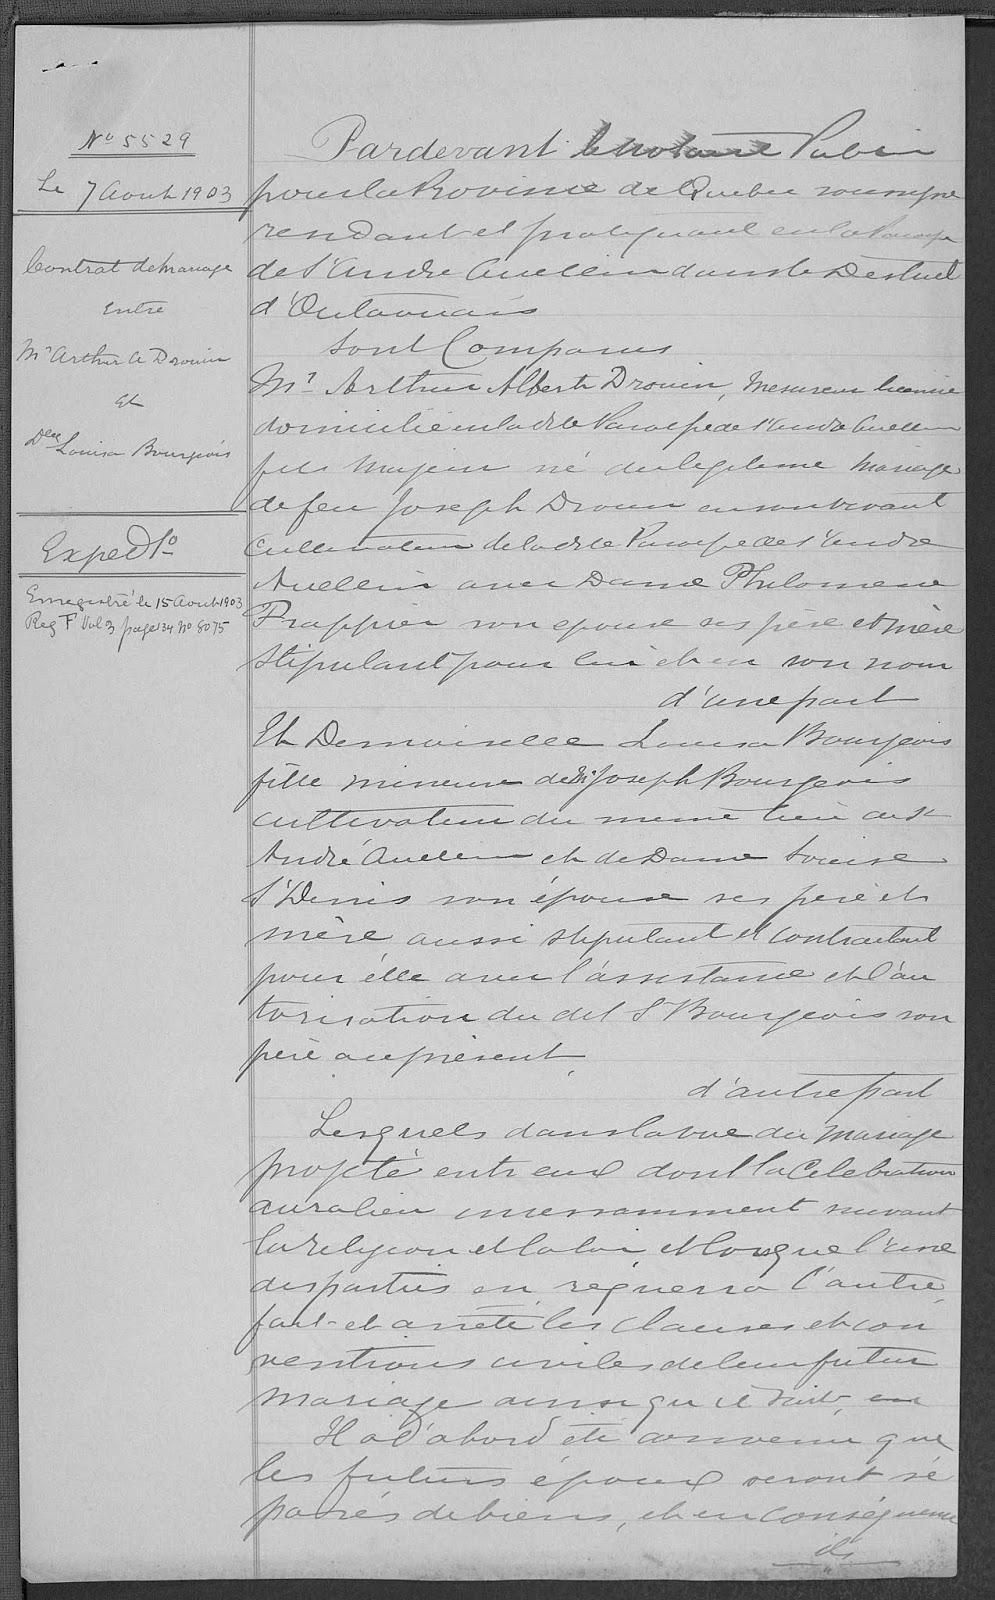 No 5529
Le 7 Aout 1903
Contrat de mariage
entre
Mr Arthur A Drouin
et
Delle Louisa Bourgeois
Exped 1o
Enregistré le 15 Aout 1903
Reg F Vol 3 page 134 No 8075
Pardevant le notaire Public
pour la Province de Quebec soussigné
residant et pratiquant en la Paroisse
de St André Avellin dans le District
d'Outaouais
sont Comparus
Mr Arthur Albert Drouin, Mesureur licencié
domicilié en la dite Paroisse de St André Avellin
fils Majeur né du legitime Mariage
de feu Joseph Drouin en son vivant
Cultivateur de la dite Paroisse de St André
Avellin avec Dame Philomene
Frappier son epouse ses père et mère
Stipulant pour lui et en son nom
d'une part
Et Demoiselle Louisa Bourgeois
fille mineure de Mr Joseph Bourgeois
cultivateur du meme lieu de St
André Avellin et de Dame Louise
St Denis son épouse ses père et
mère aussi stipulant et contractant
pour élle avec l'assistance et l'au
torisation du dit Sr Bourgeois son
père a ce présent
d'autre part
Lesquels dans la vue du Mariage
projeté entr eux dont la Celebration
aura lieu incessamment suivant
la religion et la loi et lorsque l'une
des parties en réquerra l'autre,
font et arrêté les Clauses et con
ventions civiles de leur futur
mariage ainsi qu il suit,
Il a d'abord été convenu que
les futurs époux seront sé
parés de biens, et en conséquence
ils